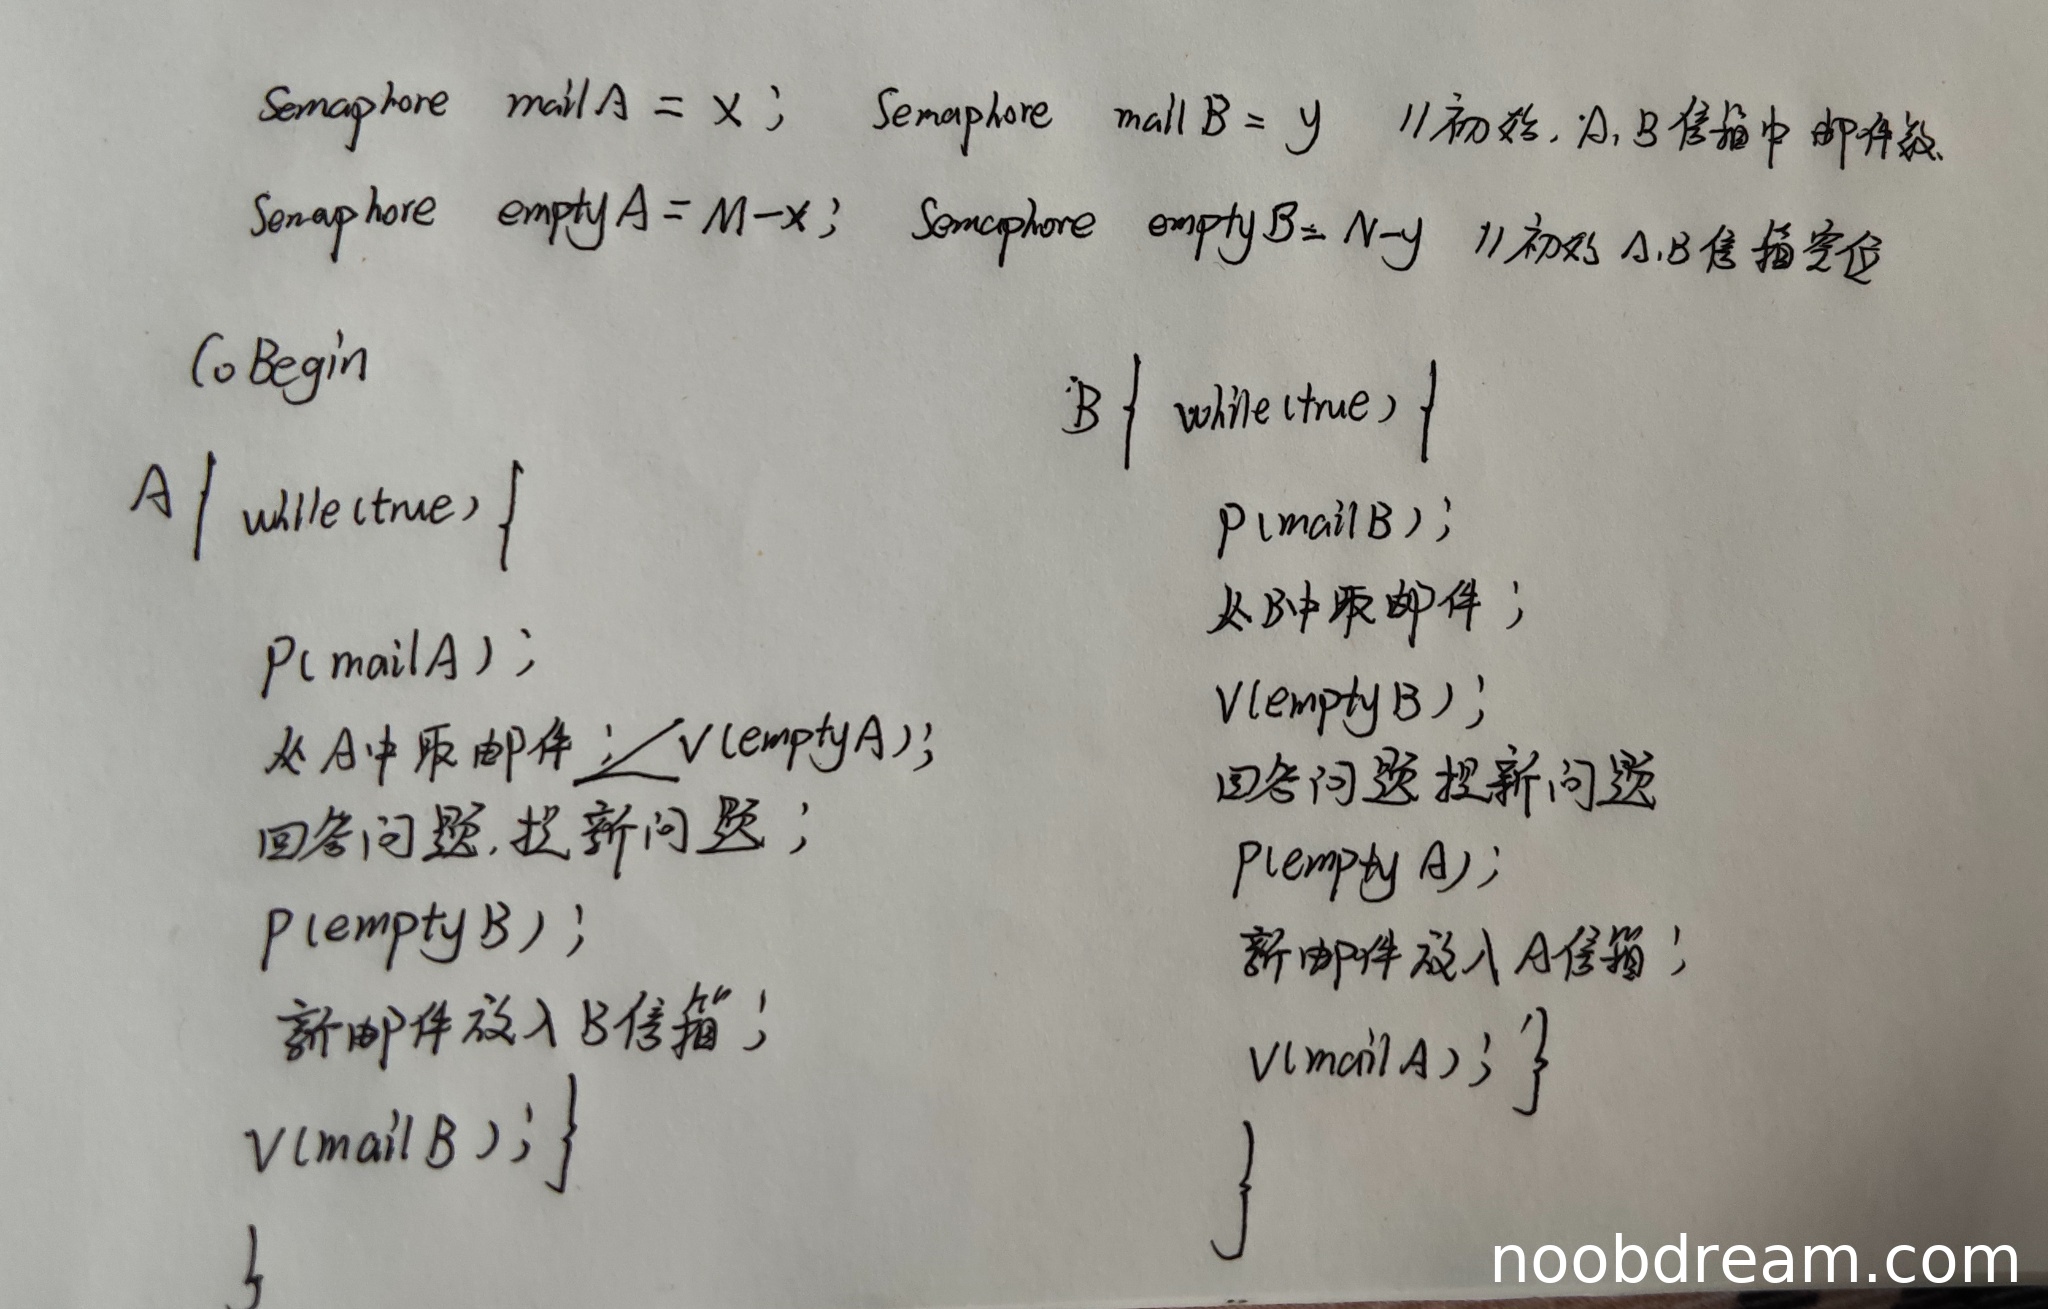 Semaphore mailA = x; Semaphore mailB = y //初始.A,B信箱中邮件数
Semaphore emptyA = M-x; Semaphore emptyB = N-y //初始A,B信箱空位
CoBegin
A{ while(true){
P(mailA);
从A中取邮件; V(emptyA);
回答问题,提新问题;
P(emptyB);
新邮件放入B信箱;
V(mailB); }
}
B{ while(true){
P(mailB);
从B中取邮件;
V(emptyB);
回答问题提新问题
P(emptyA);
新邮件放入A信箱;
V(mailA); }
}
noobdream.com